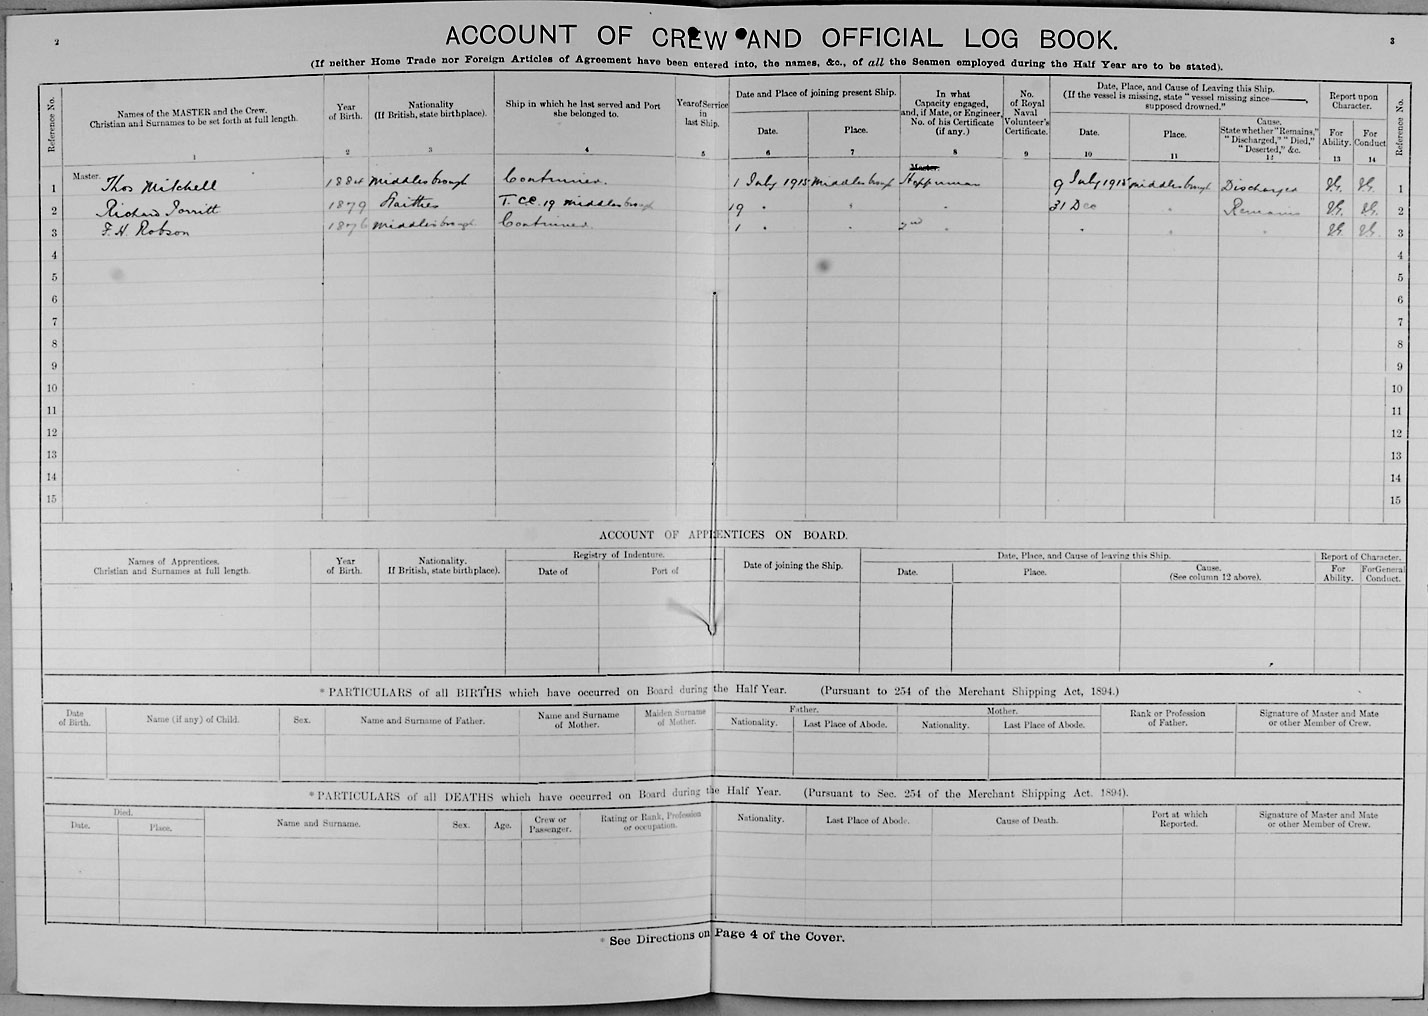 2
3
ACCOUNT OF CREW AND OFFICIAL LOG BOOK.
(If neither Home Trade nor Foreign Articles of Agreement have been entered into, the names, &c., of all the Seamen employed during the Half Year are to be stated).
Reference No.
Names of the MASTER and the Crew.
Christian and Surnames to be set forth at full length.
1
Year
of Birth.
2
Nationality
(If British, state birthplace).
3
Ship in which he last served and Port
she belonged to.
4
Year of Service
in
last Ship.
5
Date and Place of joining present Ship.
Date.
6
Place.
7
In what
Capacity engaged,
and, if Mate, or Engineer,
No. of his Certificate
(if any.)
8
No.
of Royal
Naval
Volunteer's
Certificate.
9
Date, Place, and Cause of Leaving this Ship.
(If the vessel is missing, state "vessel missing since———,
supposed drowned."
Date.
10
Place.
11
Cause.
State whether "Remains,"
"Discharged," "Died,"
"Deserted," &c.
12
Report upon
Character.
For
Ability.
13
For
Conduct
14
Reference No.
1 Master. Thos Mitchell 1884 Middlesbrough Continues. 1 July 1915 Middlesbrough Master. Hopperman 9 July 1915 Middlesbrough Discharged V.G. V.G. 1
2 Richard 1879 Staithes T.CC. 19 Middlesbrough 19 " " " 31 Dec " Remains V.G. V.G. 2
3 F. H. Robson 1876 Middlesbrough Continues. 1 " " 2nd " " " " V.G. V.G. 3
4 4
5 5
6 6
7 7
8 8
9 9
10 10
11 11
12 12
13 13
14 14
15 15
ACCOUNT OF APPRENTICES ON BOARD.
Names of Apprentices.
Christian and Surnames at full length.
Year
of Birth.
Nationality.
If British, state birthplace).
Registry of Indenture.
Date of
Port of
Date of joining the Ship.
Date, Place, and Cause of leaving this Ship.
Date.
Place.
Cause.
(See column 12 above).
Report of Character.
For
Ability.
For General
Conduct.
*PARTICULARS of all BIRTHS which have occurred on Board during the Half Year. (Pursuant to 254 of the Merchant Shipping Act, 1894.)
Date
of Birth.
Name (if any) of Child.
Sex.
Name and Surname of Father.
Name and Surname
of Mother.
Maiden Surname
of Mother.
Father.
Nationality.
Last Place of Abode.
Mother.
Nationality.
Last Place of Abode.
Rank or Profession
of Father.
Signature of Master and Mate
or other Member of Crew.
*PARTICULARS of all DEATHS which have occurred on Board during the Half Year. (Pursuant to Sec. 254 of the Merchant Shipping Act. 1894).
Died.
Date.
Place.
Name and Surname.
Sex.
Age.
Crew or
Passenger.
Rating or Rank, Profession
or occupation.
Nationality.
Last Place of Abode.
Cause of Death.
Port at which
Reported.
Signature of Master and Mate
or other Member of Crew.
* See Directions on Page 4 of the Cover.